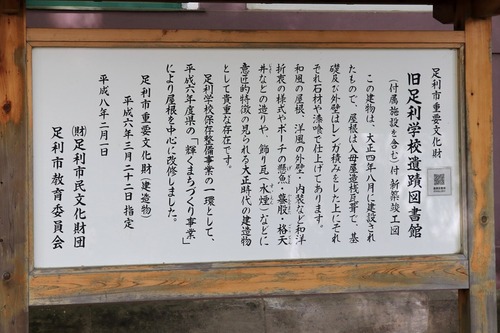 足利市重要文化財
旧足利学校遺蹟図書館
(付属施設を含む)付 新築竣工図
この建物は、大正四年八月に建設され
たもので、屋根は入母屋造桟瓦葺で、基
礎及び外壁はレンガ積みをした上にそれ
ぞれ石材や漆喰で仕上げてあります。
和風の屋根、洋風の外壁・内装など和洋
折衷の様式やポーチの懸魚・蟇股・格天
井などの造りや、飾り瓦(水煙)などに
意匠的特徴の見られる大正時代の建造物
として貴重な存在です。
足利学校保存整備事業の一環として、
平成六年度県の「輝くまちづくり事業」
により屋根を中心に改修しました。
足利市重要文化財(建造物)
平成六年三月二十二日 指定
平成八年一月一日
(財)足利市民文化財団
足利市教育委員会